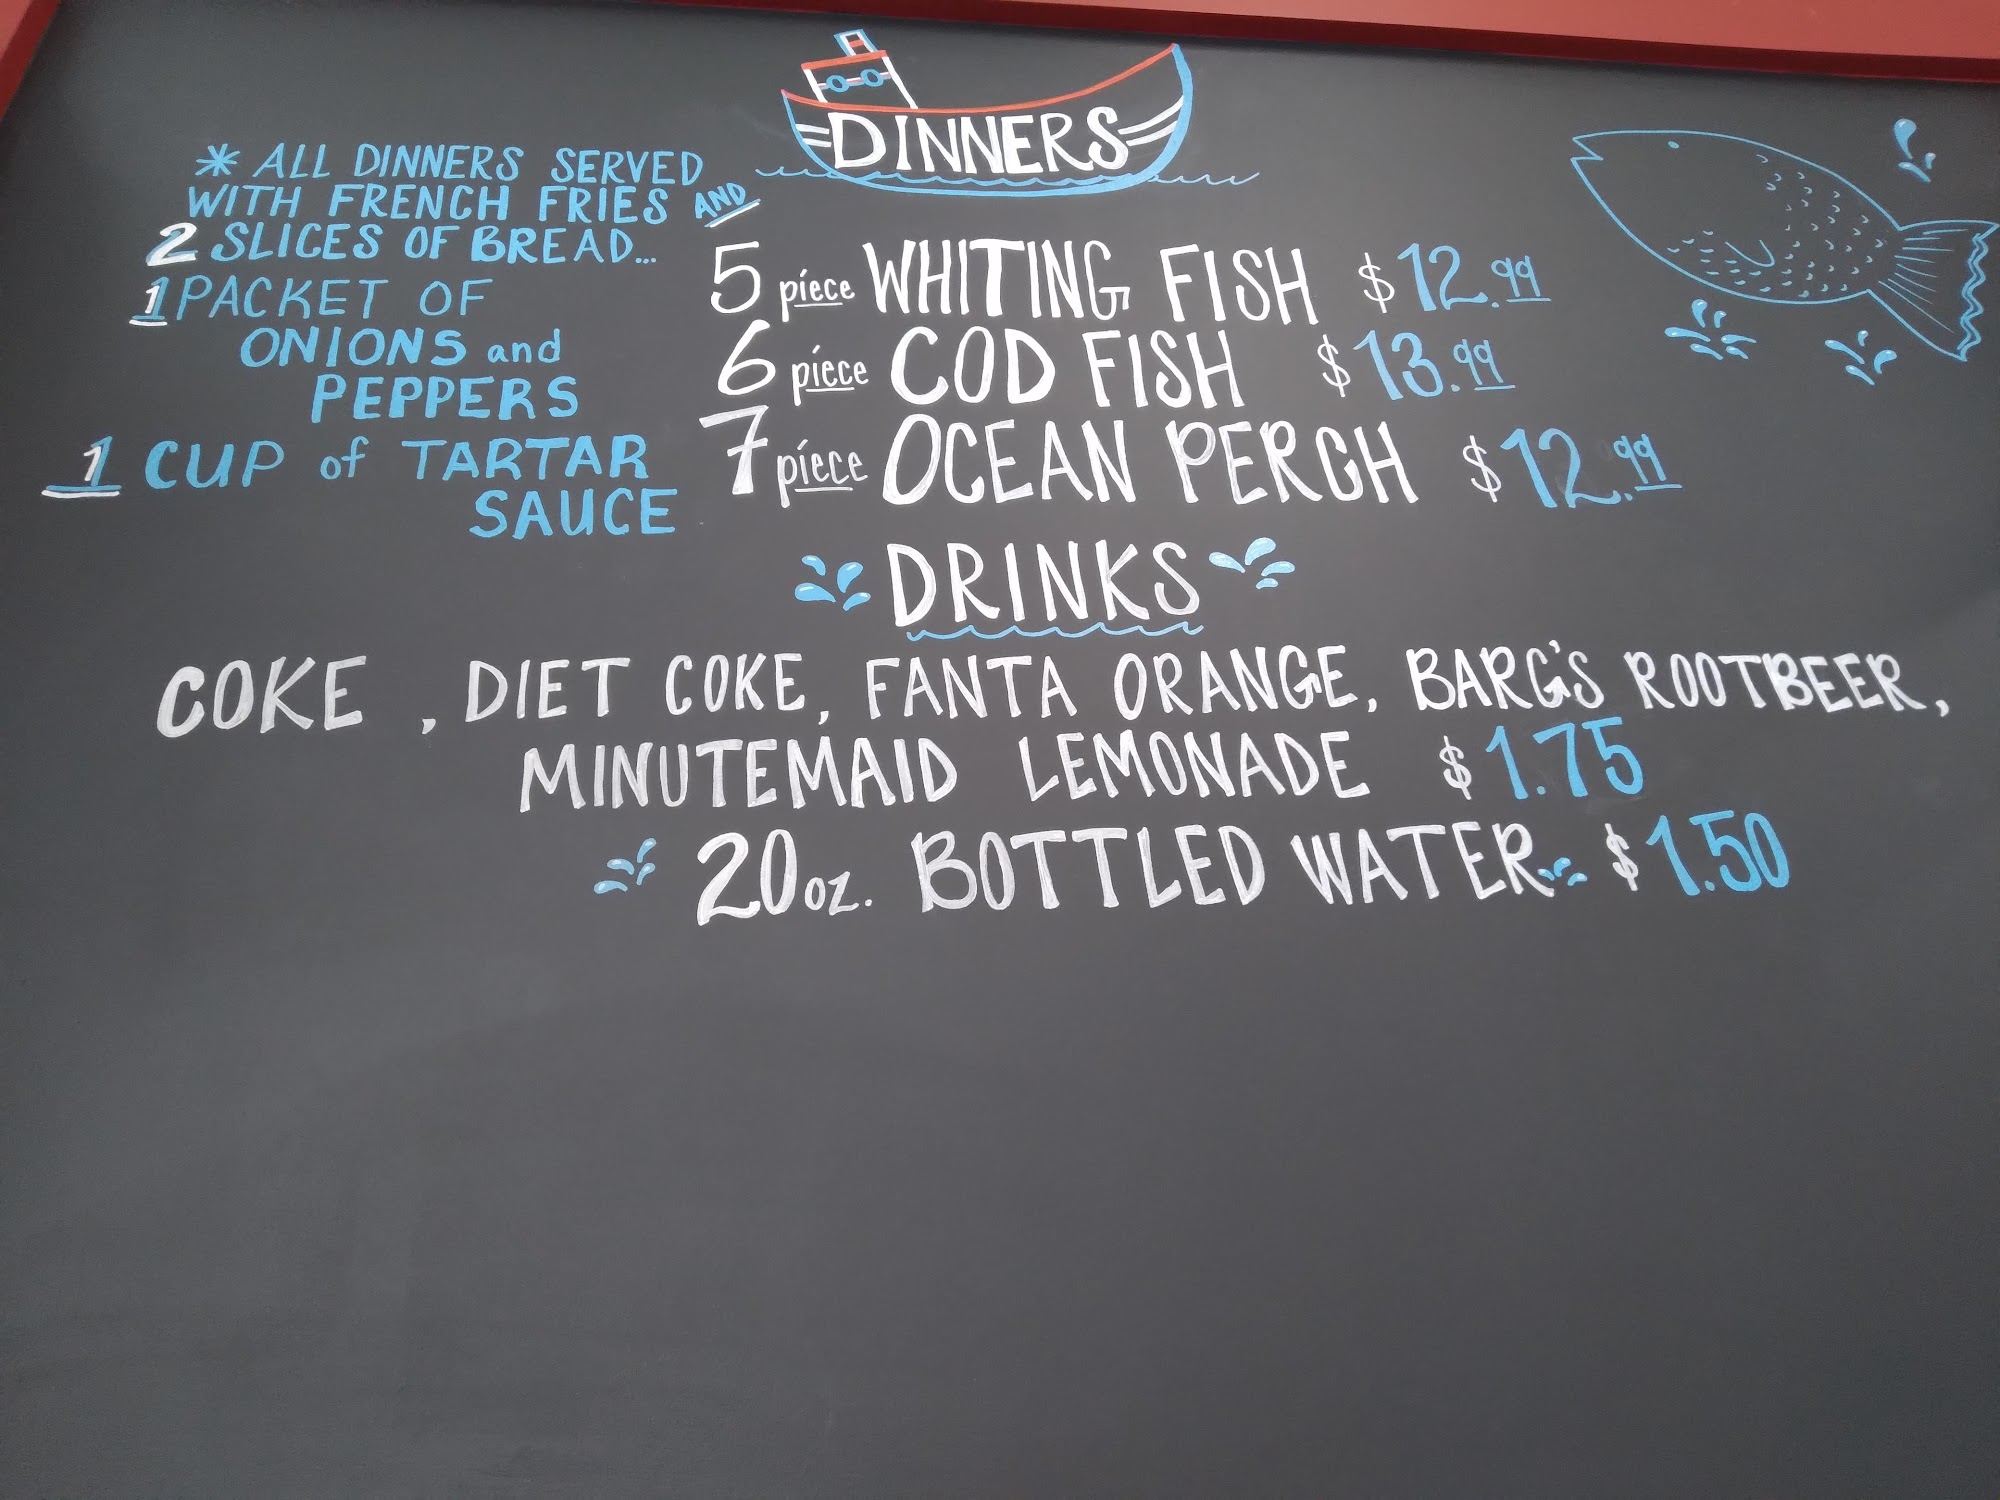 DINNERS
* ALL DINNERS SERVED
WITH FRENCH FRIES AND
2 SLICES OF BREAD...
1 PACKET OF
ONIONS and
PEPPERS
1 CUP of TARTAR
SAUCE
5 piece WHITING FISH $12.99
6 piece COD FISH $13.99
7 piece OCEAN PERCH $12.99
DRINKS
COKE, DIET COKE, FANTA ORANGE, BARG'S ROOTBEER,
MINUTEMAID LEMONADE $1.75
20oz. BOTTLED WATER $1.50